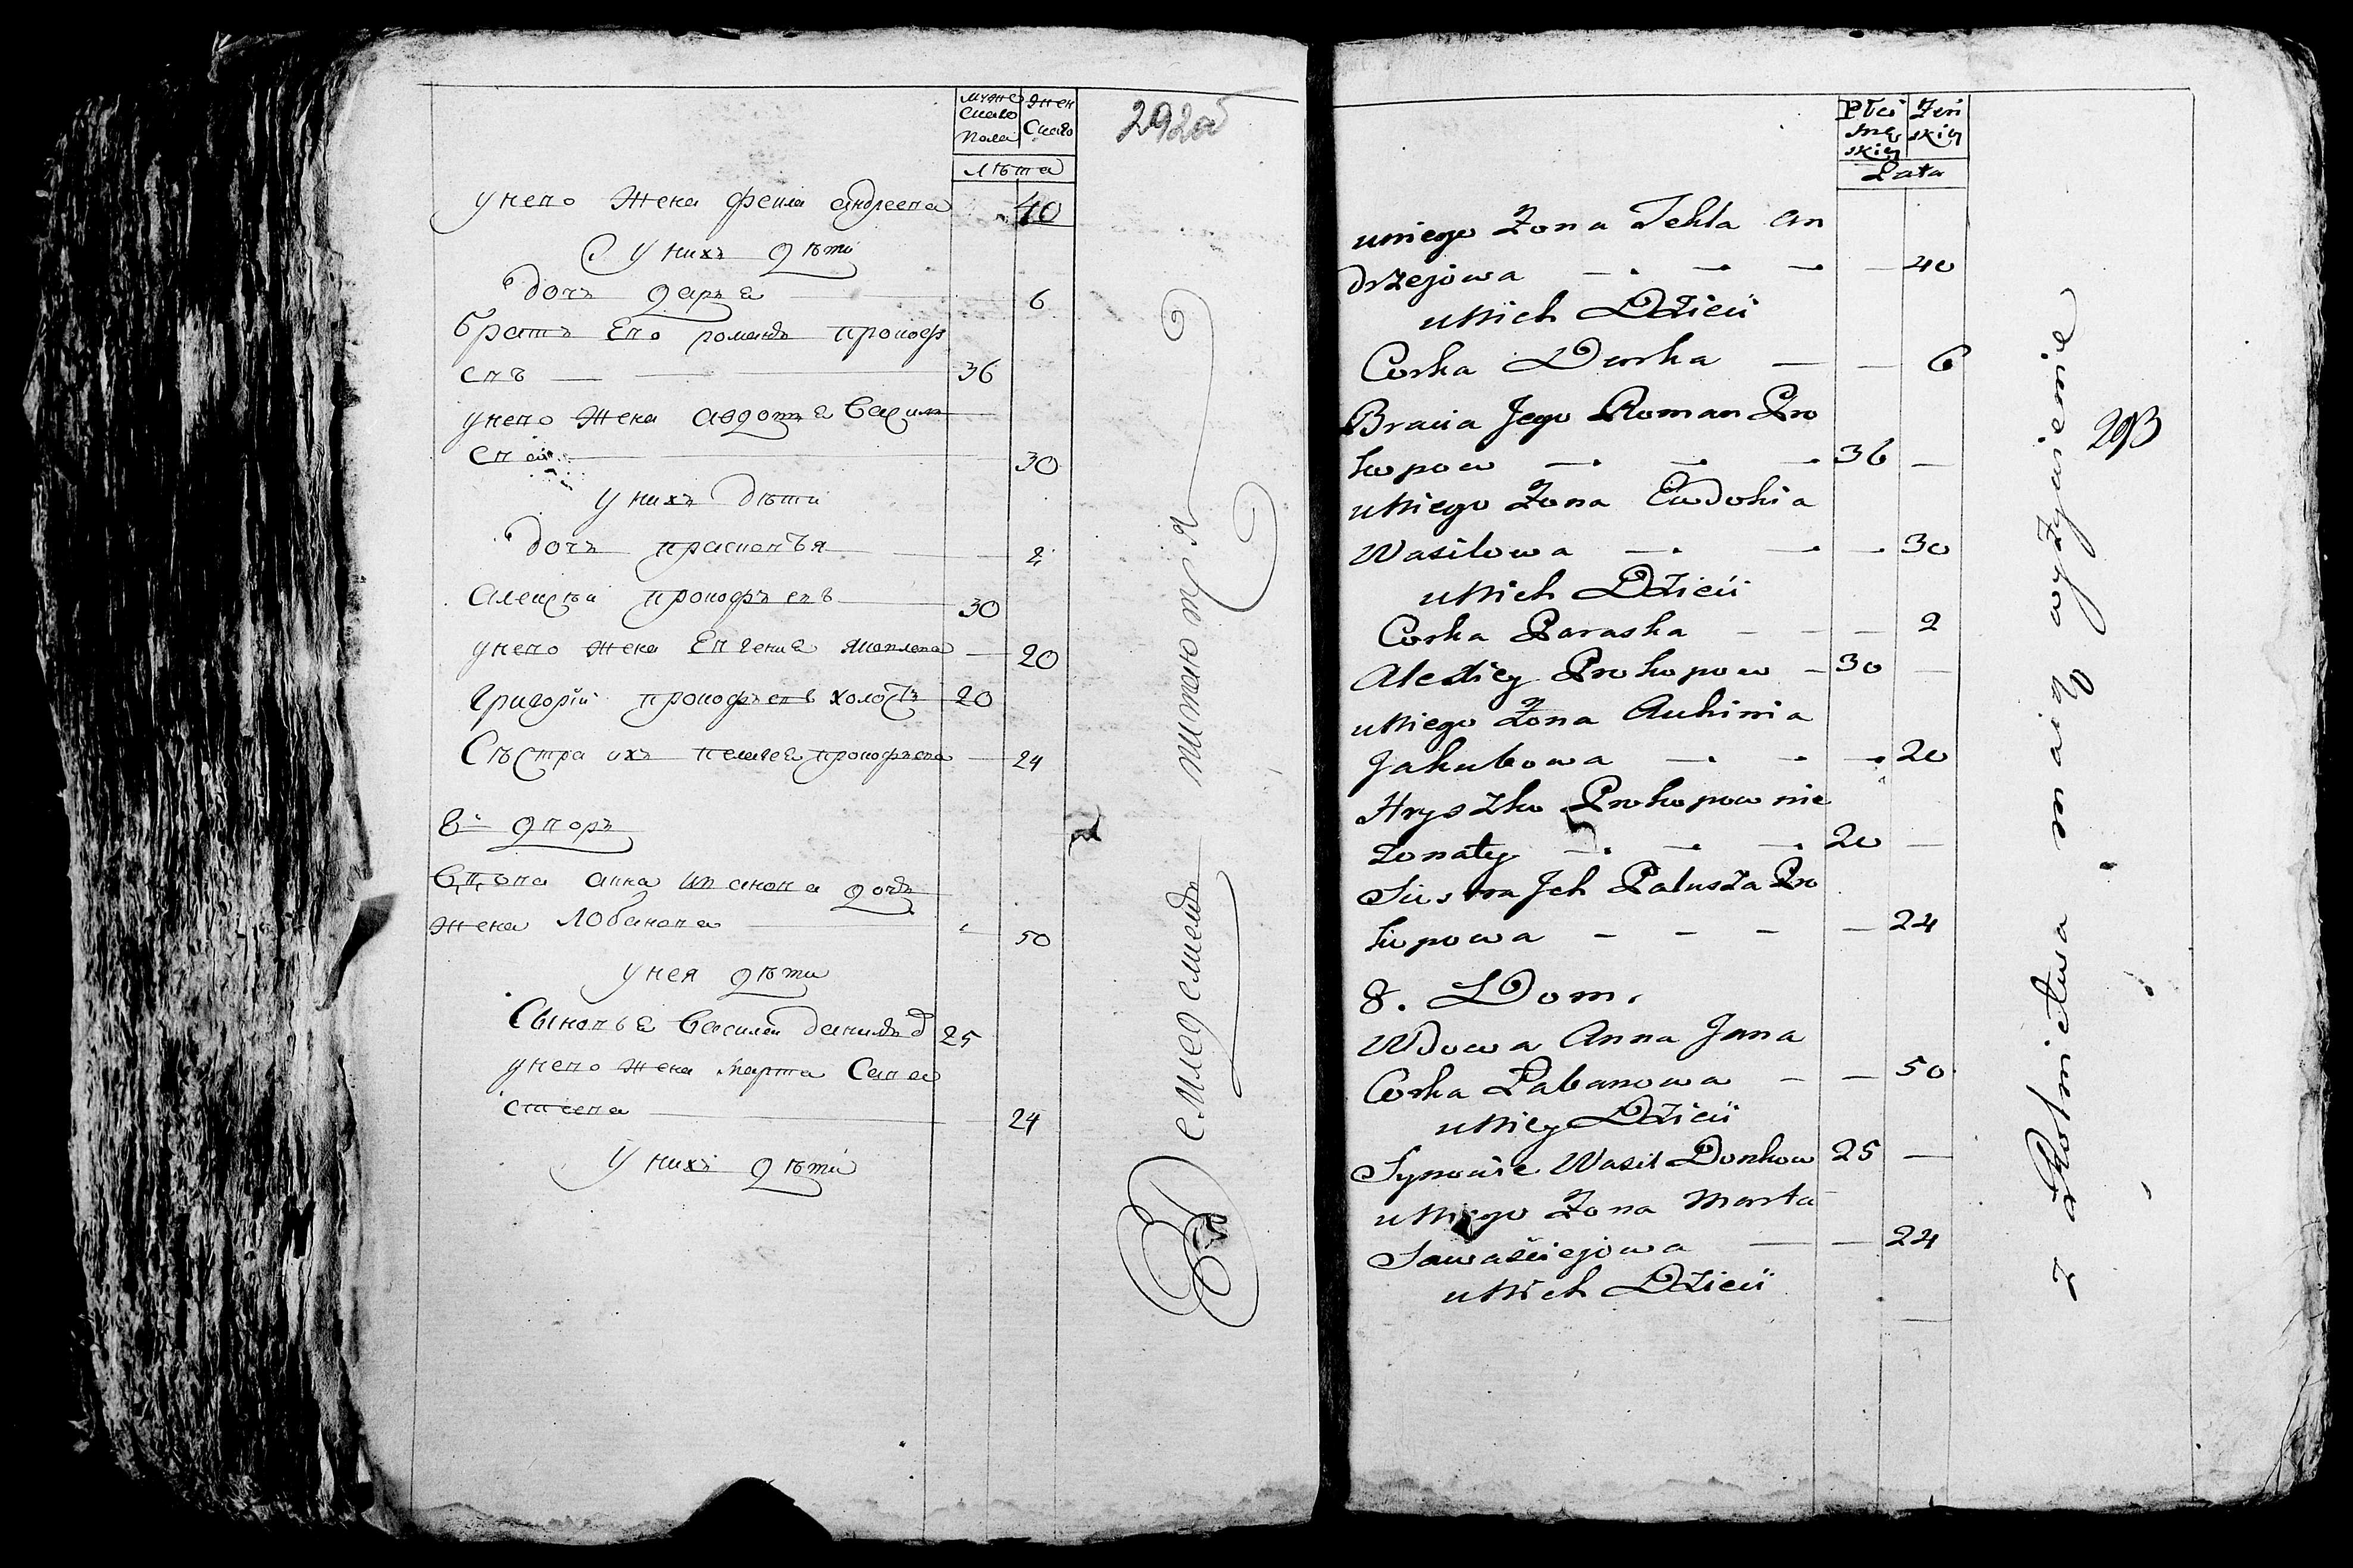 мужескаго пола
женскаго
лѣта
292об
унево жена фекла андреева 40
У нихъ дѣти
дочъ дарья 6
братъ Ево романъ прокоф
евъ 36
унево жена авдотья васил
ева 30
у нихъ дѣти
дочь прасковья 2
алексѣй прокофьевъ 30
унево жена Евгения яковлева 20
Григорий прокофьевъ холостъ 20
Сѣстра ихъ пелагея прокофьева 24
8й дворъ
вдова анна иванова дочь
жена лобанова 50
унея дѣти
Сыновья василей данилов 25
унево жена марта Сава
стеева 24
У нихъ дѣти
земледелием питаются
Płci męskiey
Żeńskiey
Lata
293
uniego Żona Tekla An
drzejowa 40
unich Dzieci
Corka Darka 6
Bracia Jego Roman Pro
kopow 36
uniego Żona Ewdokia
Wasilowa 30
unich Dzieci
Corka Paraska 2
Alexiey Prokopow 30
uniego Żona Auhinia
Jakubowa 20
Hryszko Prokopow nie
żonaty 20
Siostra Jch Palusza Pro
kopowa 24
8. Dom.
Wdowa Anna Jana
Corka Łabanowa 50
uniey Dzieci
Synowie Wasil Donkow 25
uniego Żona Marta
Sawaściejowa 24
unich Dzieci
z Rolnictwa maią wyżywienie